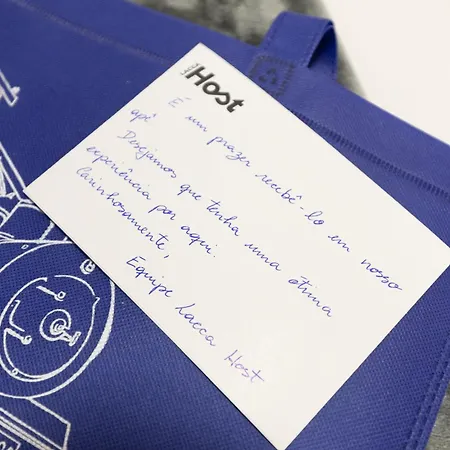 Lacca
Host
É um prazer recebê-lo em nosso
apê
Desejamos que tenha uma ótima
experiência por aqui.
Carinhosamente,
Equipe Lacca Host